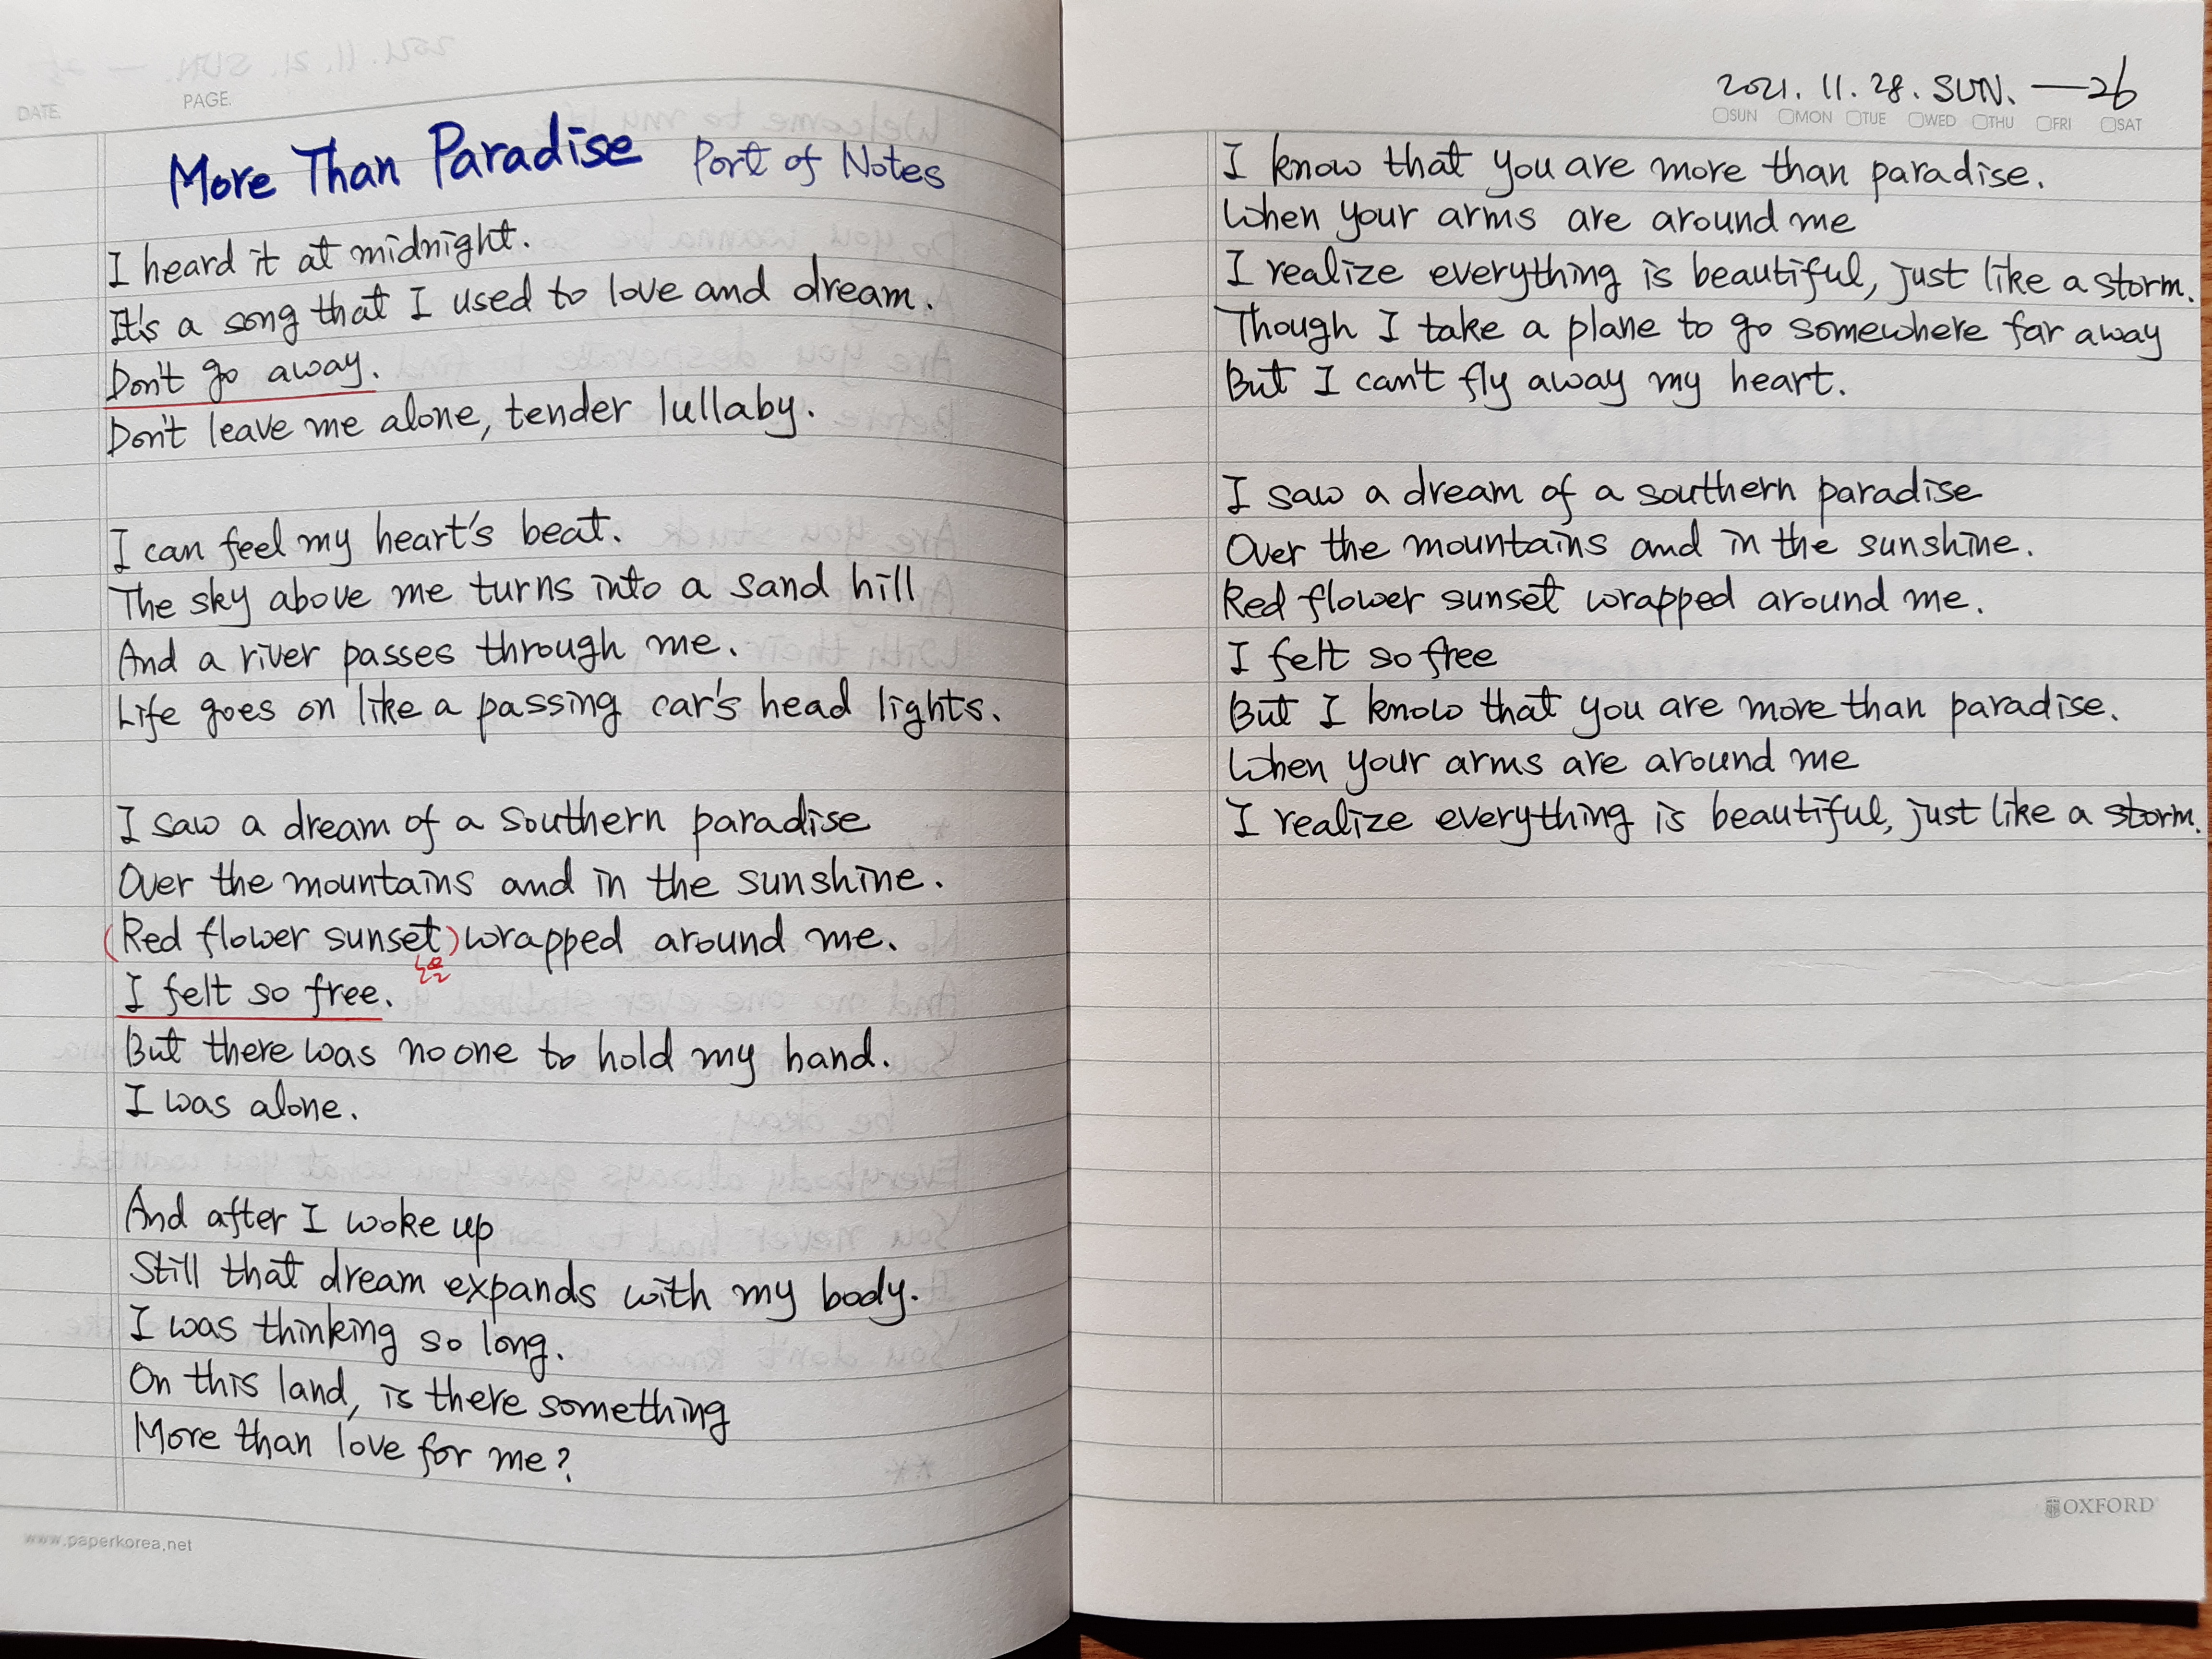 DATE.
PAGE.
More Than Paradise Port of Notes
I heard it at midnight.
It's a song that I used to love and dream.
Don't go away.
Don't leave me alone, tender lullaby.
I can feel my heart's beat.
The sky above me turns into a sand hill
And a river passes through me.
Life goes on like a passing car's head lights.
I saw a dream of a southern paradise
Over the mountains and in the sunshine.
(Red flower sunset) wrapped around me.
I felt so free.
But there was no one to hold my hand.
I was alone.
And after I woke up
Still that dream expands with my body.
I was thinking so long.
On this land, is there something
More than love for me?
www.paperkorea.net
2021. 11. 28. SUN. —26
SUN MON TUE WED THU FRI SAT
I know that you are more than paradise.
When your arms are around me
I realize everything is beautiful, just like a storm.
Though I take a plane to go somewhere far away
But I can't fly away my heart.
I saw a dream of a southern paradise
Over the mountains and in the sunshine.
Red flower sunset wrapped around me.
I felt so free
But I know that you are more than paradise.
When your arms are around me
I realize everything is beautiful, just like a storm.
OXFORD